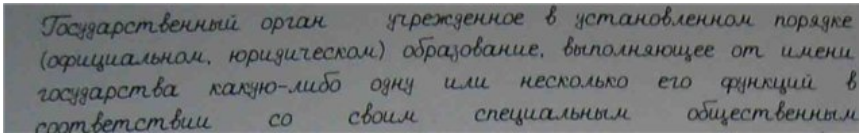 Государственный орган учрежденное в установленном порядке
(официальном, юридическом) образование, выполняющее от имени
государства какую-либо одну или несколько его функций в
соответствии со своим специальным общественным